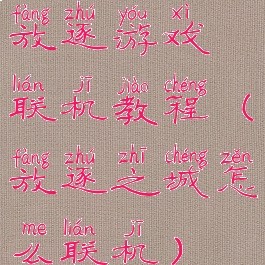 fàng zhú yóu xì
放逐游戏
lián jī jiào chéng
联机教程（
fàng zhú zhī chéng zěn
放逐之城怎
me lián jī
么联机）